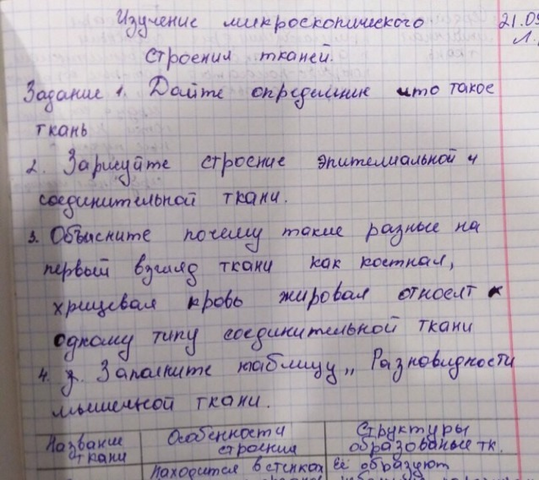 Изучение микроскопического 21.09
строения тканей. Л.
Задание 1. Дайте определение что такое
ткань
2. Зарисуйте строение эпителиальной и
соединительной ткани.
3. Объясните почему такие разные на
первый взгляд ткани как костная,
хрящевая кровь жировая относят к
одному типу соединительной ткани
4. Заполните таблицу „ Разновидности
мышечной ткани.
Название Особенности Структуры
ткани строения образованые тк.
находится в стенках Её образуют